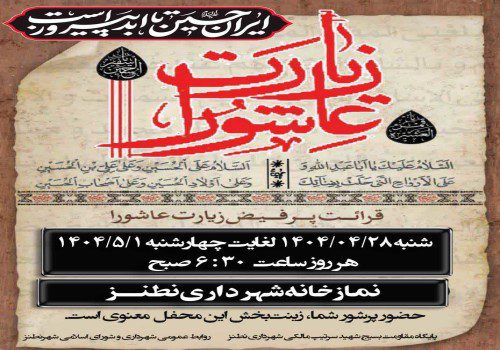 ایران حسین تا ابد پیروز است
زیارت
عاشورا
السَّلامُ عَلَیْکَ یا اَباعَبْدِاللهِ وَ
عَلَی الْاَرْواحِ الَّتی حَلَّتْ بِفِنائِکَ
اَلسَّلامُ عَلَی الْحُسَیْنِ وَ عَلی عَلِیِّ بْنِ الْحُسَیْنِ
وَ عَلی اَوْلادِ الْحُسَیْنِ وَ عَلی اَصْحابِ الْحُسَیْنِ
قرائت پرفیض زیارت عاشورا
شنبه ۱۴۰۴/۰۴/۲۸ لغایت چهارشنبه ۱۴۰۴/۵/۱
هر روز ساعت ۶:۳۰ صبح
نمازخانه شهرداری نطنز
حضور پرشور شما، زینت‌بخش این محفل معنوی است
پایگاه مقاومت بسیج شهید سرتیپ مالکی شهرداری نطنز
روابط عمومی شهرداری و شورای اسلامی شهر نطنز